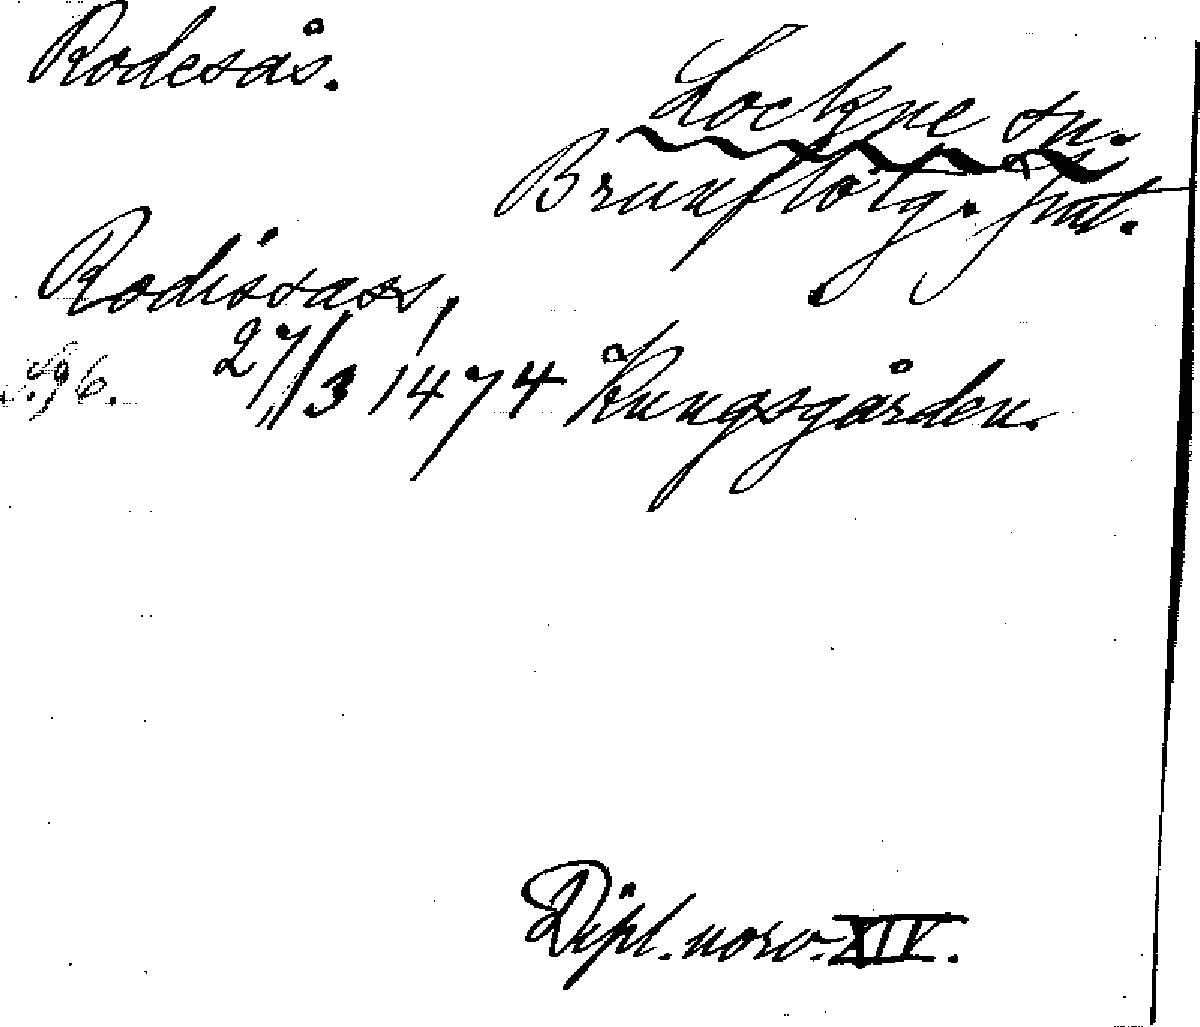 Rodesås.
Lockne sn.
Brunflo tg. Jmt.
Rodissass,
S. 96. 27/3 1474 Kungsgården.
Dipl. norv. XIV.